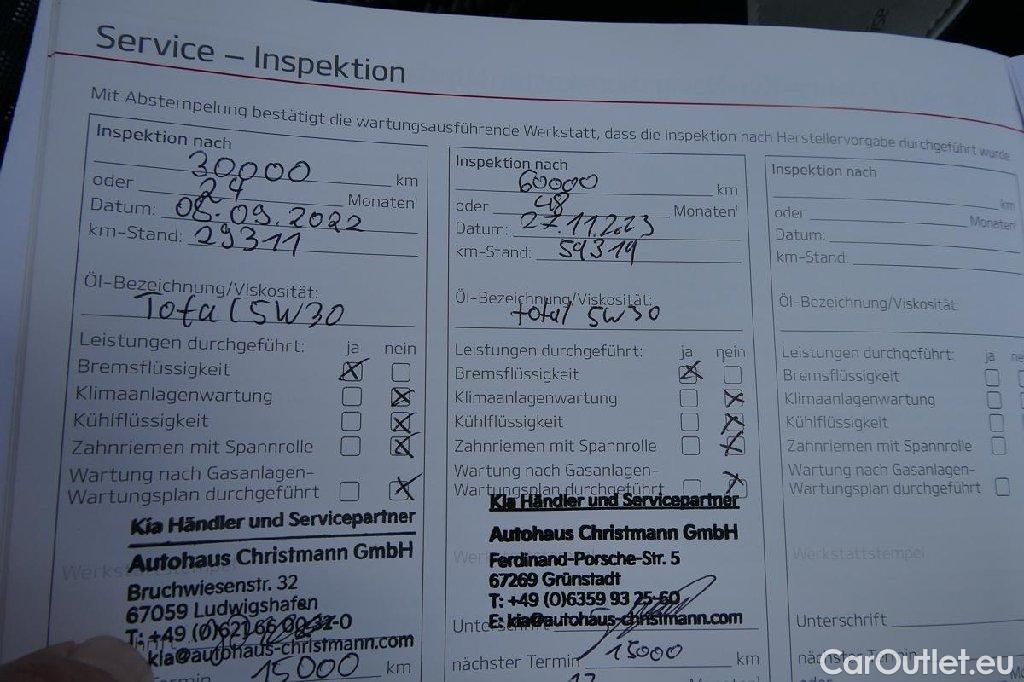 Service – Inspektion
Mit Abstempelung bestätigt die wartungsausführende Werkstatt, dass die Inspektion nach Herstellervorgabe durchgeführt wurde
Inspektion nach
30000 km
oder 24 Monaten
Datum: 05.09.2022
km-Stand: 29311
Öl-Bezeichnung/Viskosität:
Total 5W30
Leistungen durchgeführt: ja nein
Bremsflüssigkeit
Klimaanlagenwartung
Kühlflüssigkeit
Zahnriemen mit Spannrolle
Wartung nach Gasanlagen-
Wartungsplan durchgeführt
Kia Händler und Servicepartner
Autohaus Christmann GmbH
Bruchwiesenstr. 32
67059 Ludwigshafen
T: +49 (0)621 66 00 32-0
kia@autohaus-christmann.com
Termin 15000 km
Inspektion nach
60000 km
oder 48 Monaten
Datum: 27.11.2023
km-Stand: 59319
Öl-Bezeichnung/Viskosität:
total 5W30
Leistungen durchgeführt: ja nein
Bremsflüssigkeit
Klimaanlagenwartung
Kühlflüssigkeit
Zahnriemen mit Spannrolle
Wartung nach Gasanlagen-
Wartungsplan durchgeführt
Kia Händler und Servicepartner
Autohaus Christmann GmbH
Ferdinand-Porsche-Str. 5
67269 Grünstadt
T: +49 (0)6359 93 25-60
E: kia@autohaus-christmann.com
nächster Termin 15000 km
12
Inspektion nach
km
oder Monaten
Datum:
km-Stand:
Öl-Bezeichnung/Viskosität:
Leistungen durchgeführt: ja
Bremsflüssigkeit
Klimaanlagenwartung
Kühlflüssigkeit
Zahnriemen mit Spannrolle
Wartung nach Gasanlagen-
Wartungsplan durchgeführt
Werkstattstempel
Unterschrift
nächster Termin
CarOutlet.eu